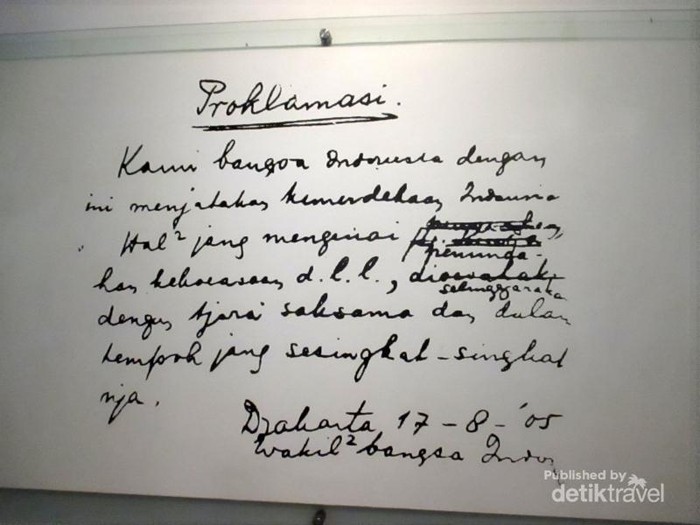 Proklamasi.
Kami bangsa Indonesia dengan
ini menjatakan kemerdekaan Indonesia
Hal² jang mengenai
peminda-
han kekoeasaan d.l.l.,
diselenggarakan
dengan tjara saksama dan dalam
tempoh jang sesingkat-singkat
nja.
Djakarta 17-8-'05
Wakil² bangsa Indon
Published by
detiktravel